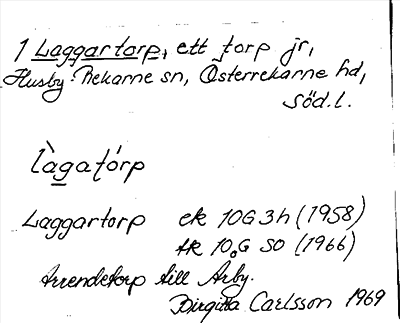 1 Laggartorp, ett torp fr,
Husby-Rekarne sn, Österrekarne hd,
Söd. l.
làgatórp
Laggartorp ek 10G3h (1958)
tk 10G SO (1966)
Arrendetorp till Årby.
Birgitta Carlsson 1969